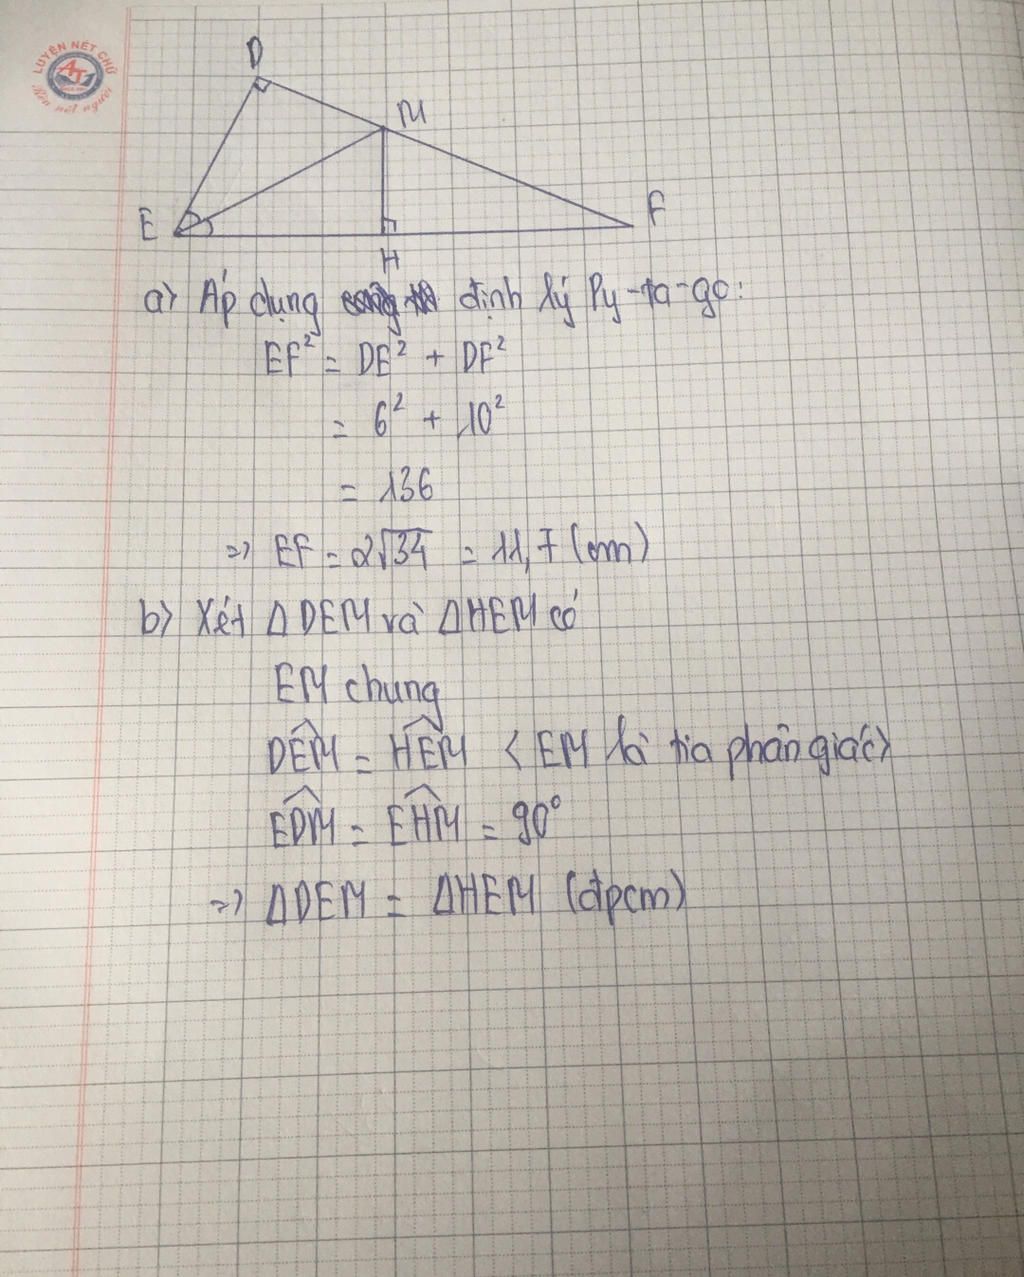 LUYỆN NẾT CHỮ
AT
Rèn nết người
D
M
E
F
H
a) Áp dụng định lý Py-ta-go:
EF² = DE² + DF²
= 6² + 10²
= 136
=> EF = 2√34 = 11,7 (cm)
b) Xét Δ DEM và Δ HEM có
EM chung
DÊM = HÊM < EM là tia phân giác>
ED̂M = EĤM = 90°
=> ΔDEM = ΔHEM (đpcm)